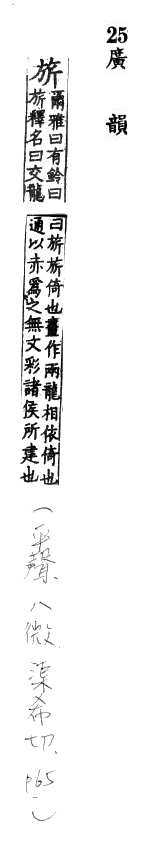 25廣韻
旂 爾雅曰有鈴曰
旂釋名曰交龍
曰旂旂倚也畫作兩龍相依倚也
通以赤爲之無文彩諸侯所建也
(平聲、八微、渠希切、p65)